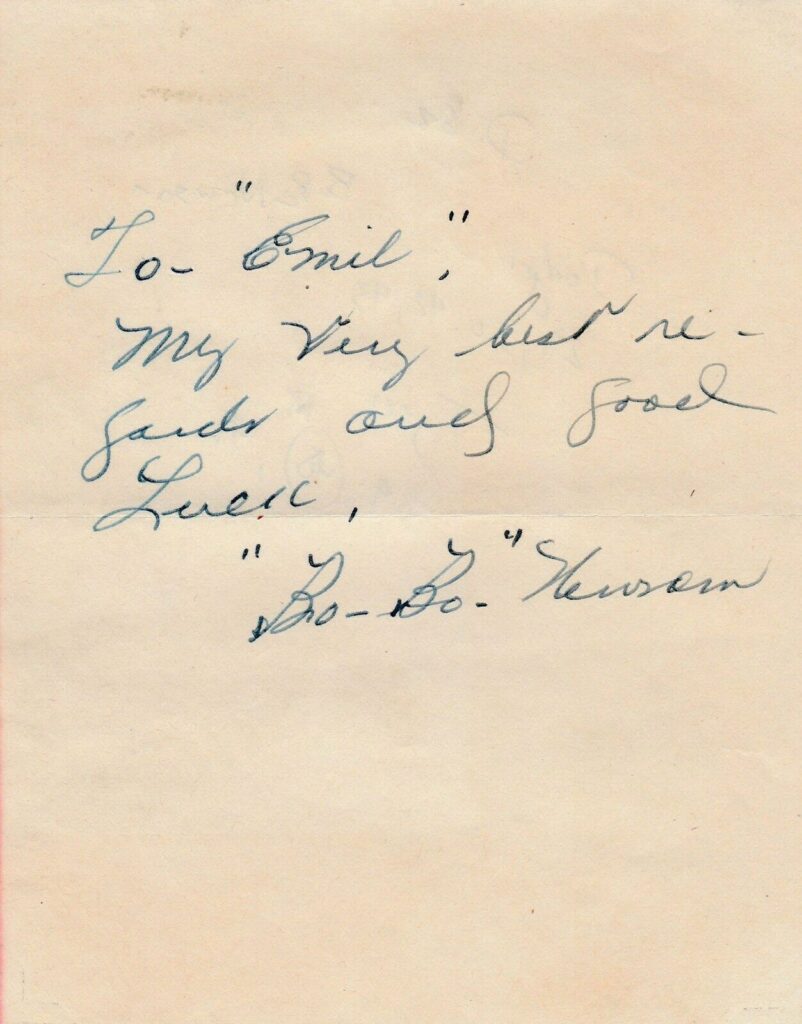 To- "Emil",
My Very best re-
gards and good
Luck,
"Bo-Bo-" Newsom